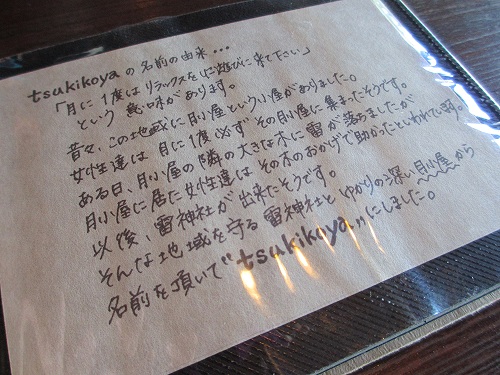 tsukikoyaの名前の由来...
「月に1度はリラックスをしに遊びに来て下さい」
という意味があります。
昔々、この地域に月小屋という小屋がありました。
女性達は月に1度必ずその月小屋に集まったそうです。
ある日、月小屋の隣の大きな木に雷が落ちましたが
月小屋に居た女性達はその木のおかげで助かったといわれています。
以後、雷神社が出来たそうです。
そんな地域を守る雷神社とゆかりの深い月小屋から
名前を頂いて"tsukikoya"にしました。